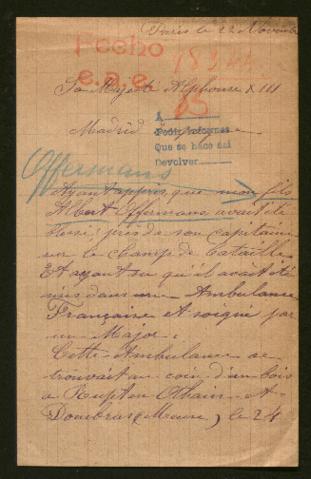 Paris le 22 Novembre
Fecho
e.a.e.
Sa Majesté Alphonse XIII
Madrid
A
Pedir informes
Que se hace así
Devolver
Offermans
Ayant appris que mon fils
Albert Offermans avait été
blessé près de son capitaine
sur le champ de bataille
Et ayant su qu'il avait été
mis dans une Ambulance
Française et soigné par
un Major.
Cette Ambulance se
trouvait au coin d'un bois
a Rupt en Othain et
Dombras (Meuse) le 24